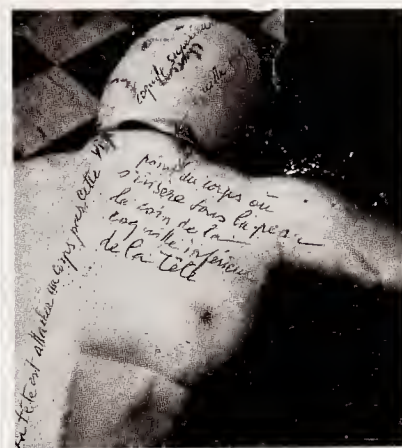 coquille supérieure
cette vis
point du corps où
s'insere sous la peau
le coin de la
coquille inferieure
de la Tête
la Tête est attachée au corps par cette vis